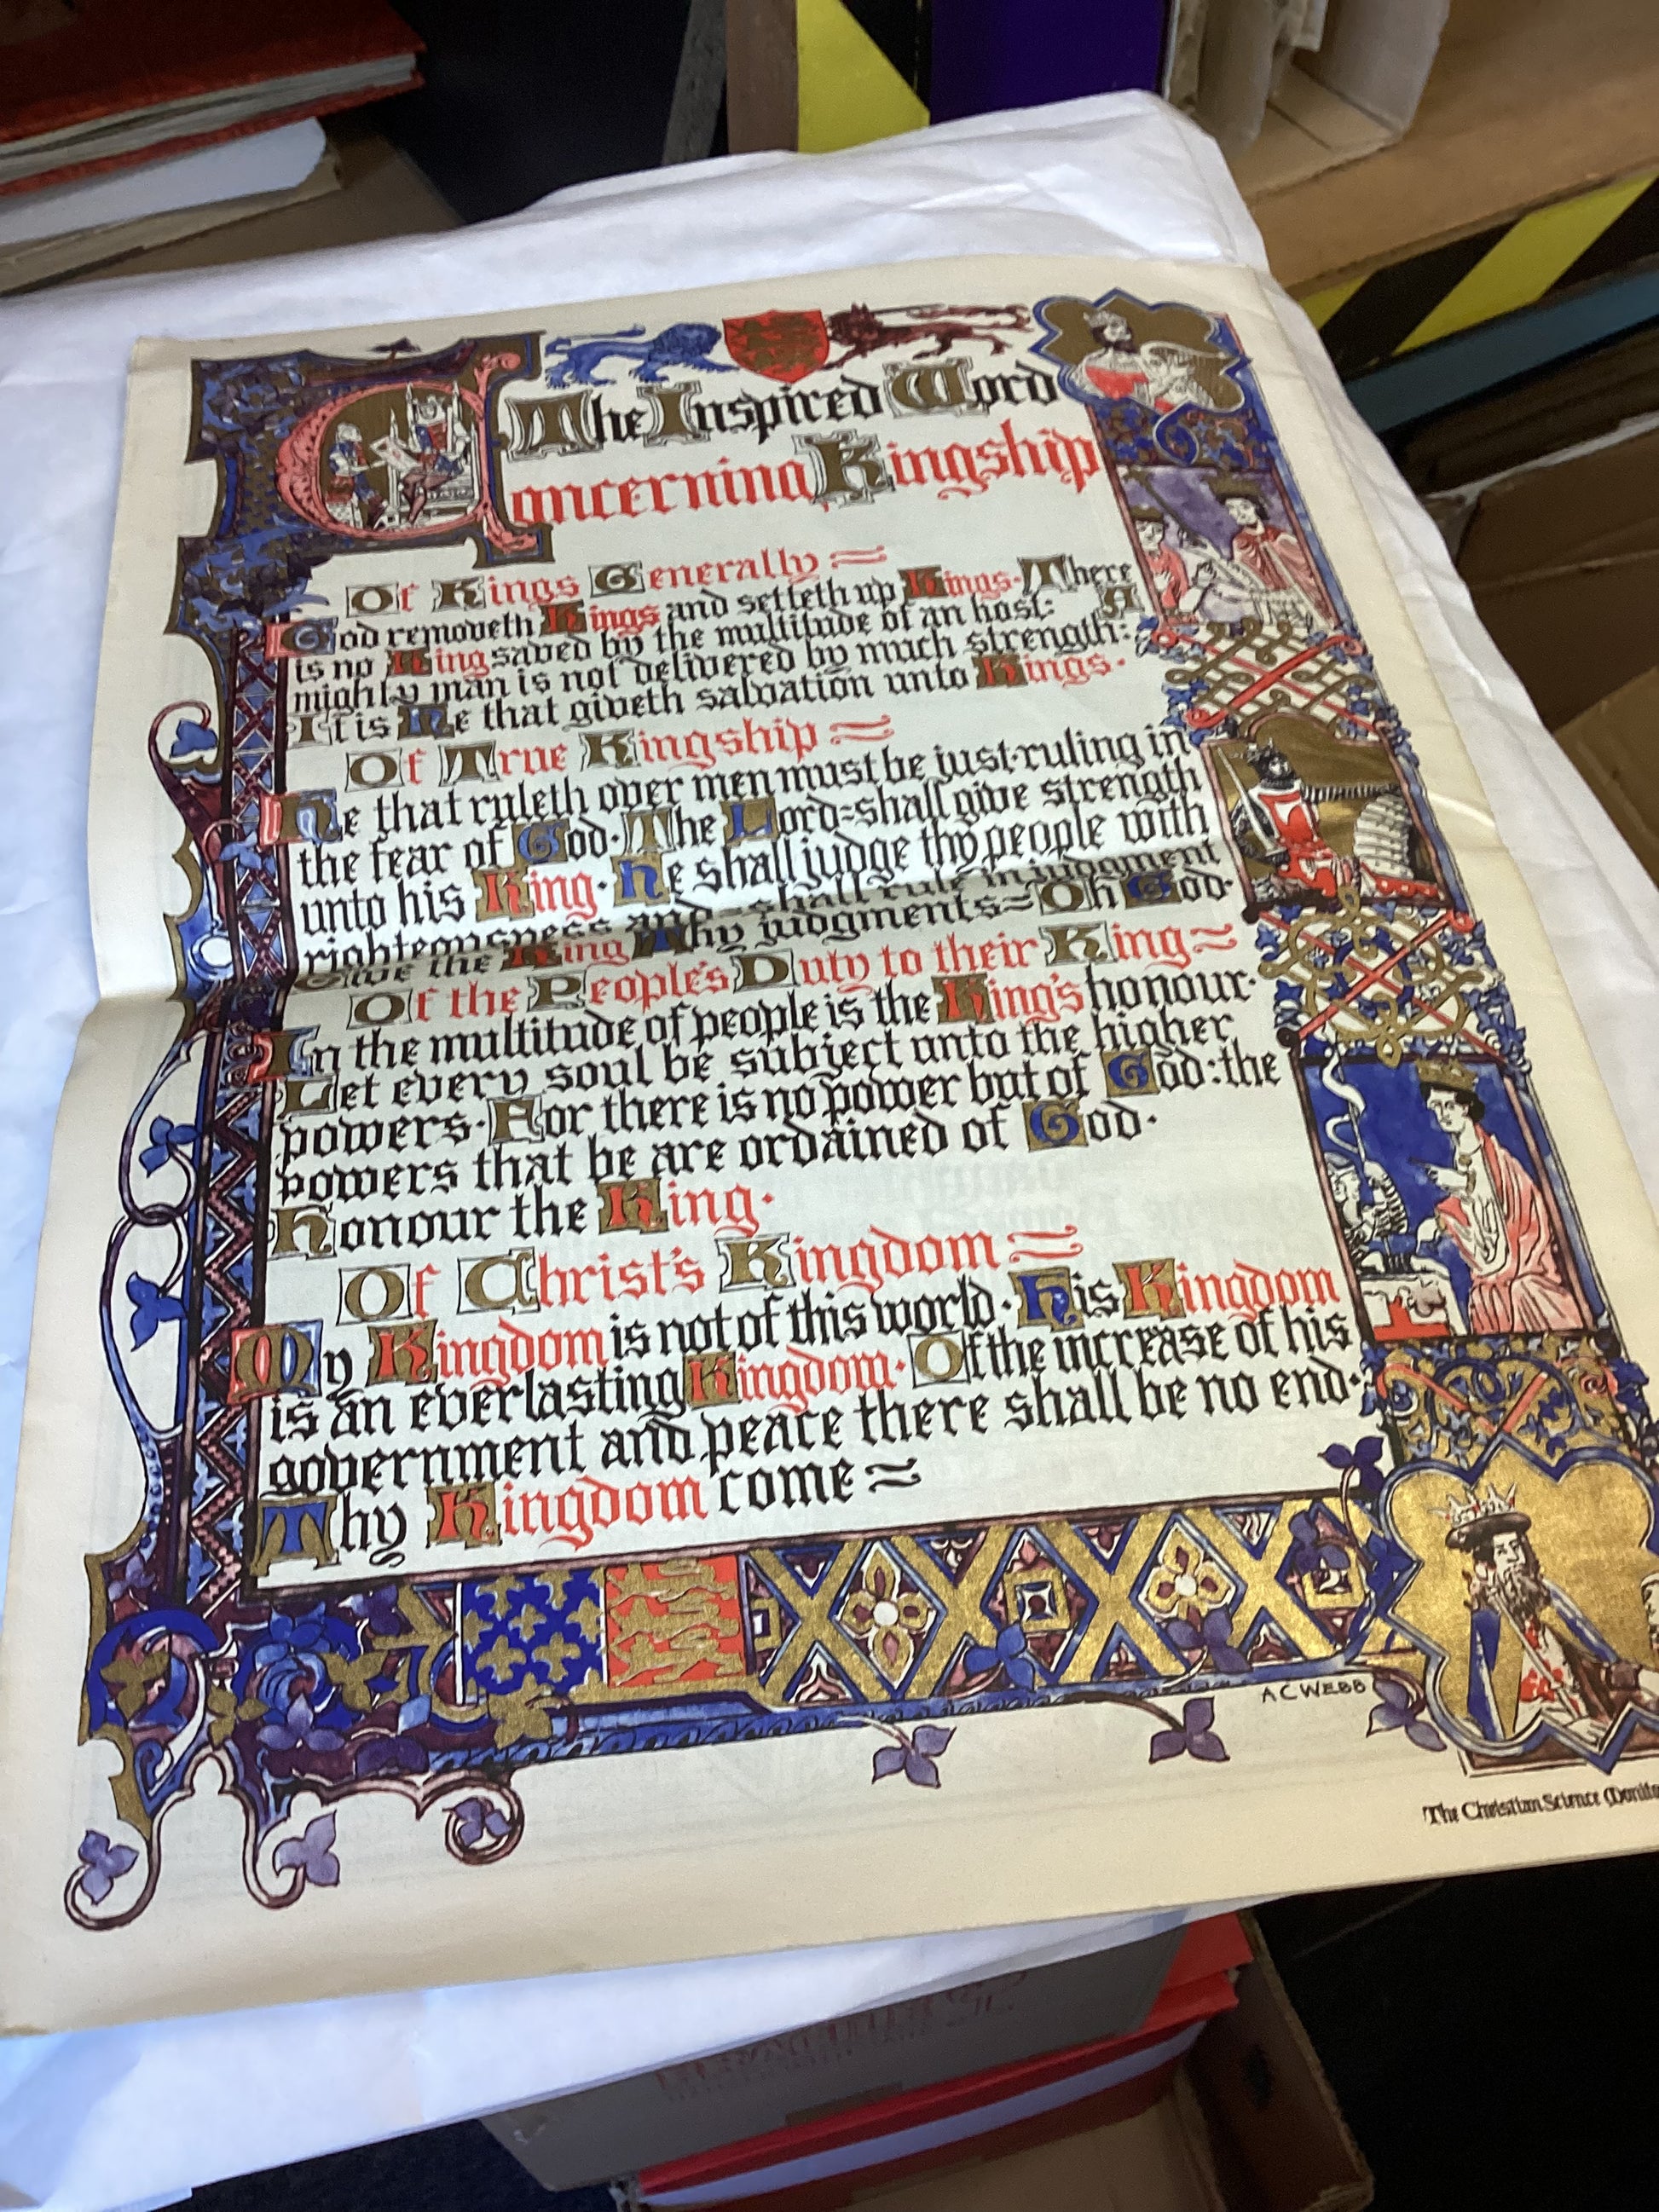 The Inspired Word
Concerning Kingship
Of Kings Generally
God removeth Kings and setteth up Kings. There
is no King saved by the multitude of an host: A
mighty man is not delivered by much strength:
It is He that giveth salvation unto Kings.
Of True Kingship
He that ruleth over men must be just. ruling in
the fear of God. The Lord shall give strength
unto his King. He shall judge thy people with
righteousness and shall rule in judgment
Give the King Thy judgments Oh God.
Of the People's Duty to their King
In the multitude of people is the King's honour.
Let every soul be subject unto the higher
powers. For there is no power but of God: the
powers that be are ordained of God.
Honour the King.
Of Christ's Kingdom
My Kingdom is not of this world. His Kingdom
is an everlasting Kingdom. Of the increase of his
government and peace there shall be no end.
Thy Kingdom come
A C WEBB
The Christian Science